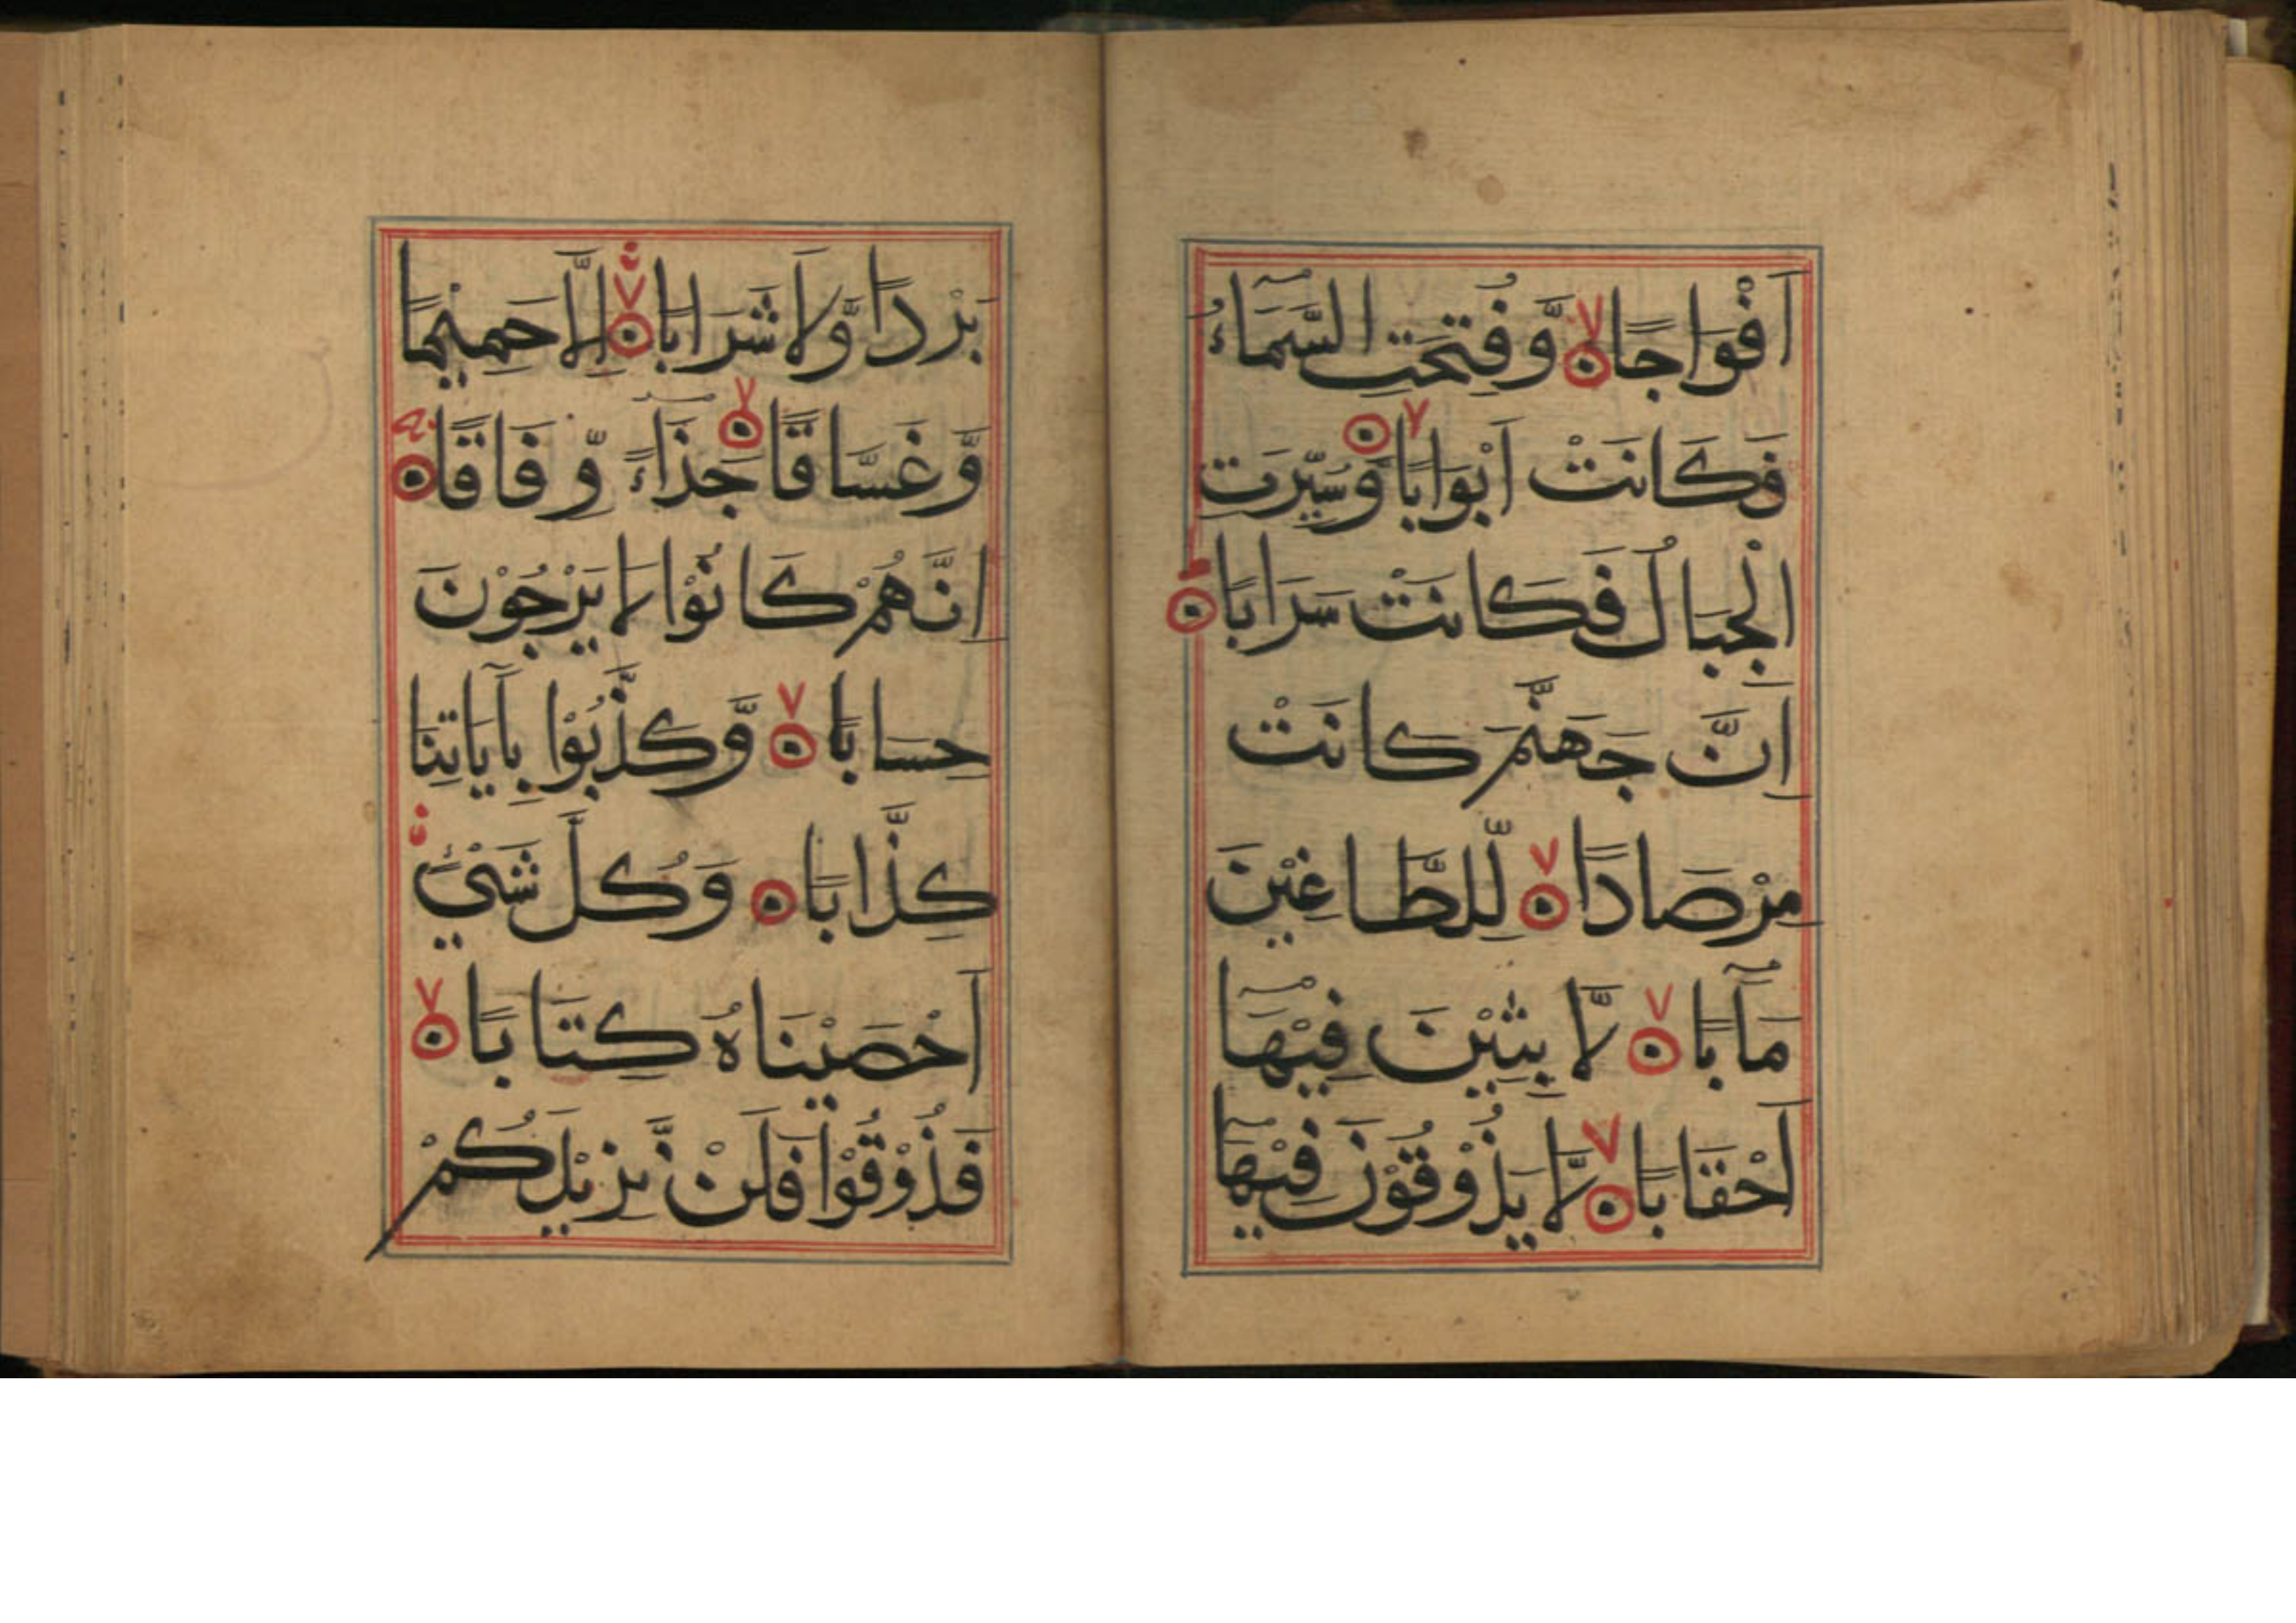 اَفْوَاجًا ۙ وَّفُتِحَتِ السَّمَآءُ
فَكَانَتْ اَبْوَابًا ۙ وَّسُيِّرَتِ
الْجِبَالُ فَكَانَتْ سَرَابًا ؕ
اِنَّ جَهَنَّمَ كَانَتْ
مِرْصَادًا ۙ لِّلطَّاغِيْنَ
مَآبًا ۙ لّٰبِثِيْنَ فِيْهَآ
اَحْقَابًا ۙ لَّا يَذُوْقُوْنَ فِيْهَا
بَرْدًا وَّلَا شَرَابًا ۙ اِلَّا حَمِيْمًا
وَّغَسَّاقًا ۙ جَزَآءً وِّفَاقًا
اِنَّهُمْ كَانُوْا لَا يَرْجُوْنَ
حِسَابًا ۙ وَّكَذَّبُوْا بِاٰيَاتِنَا
كِذَّابًا وَكُلَّ شَيْئٍ
اَحْصَيْنَاهُ كِتَابًا ۙ
فَذُوْقُوْا فَلَنْ نَّزِيْدَكُمْ